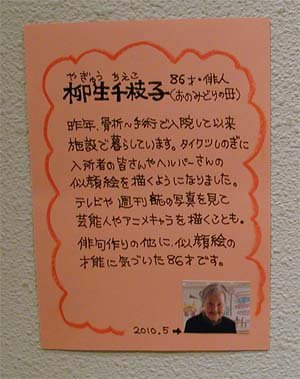 やぎゅう ちえこ
柳生千枝子 86才・俳人
(あのみどりの母)
昨年、骨折〜手術で入院して以来
施設で暮らしています。タイクツしのぎに
入所者の皆さんやヘルパーさんの
似顔絵を描くようになりました。
テレビや週刊誌の写真を見て
芸能人やアニメキャラを描くことも。
俳句作りの他に、似顔絵の
才能に気づいた86才です。
2010.5→